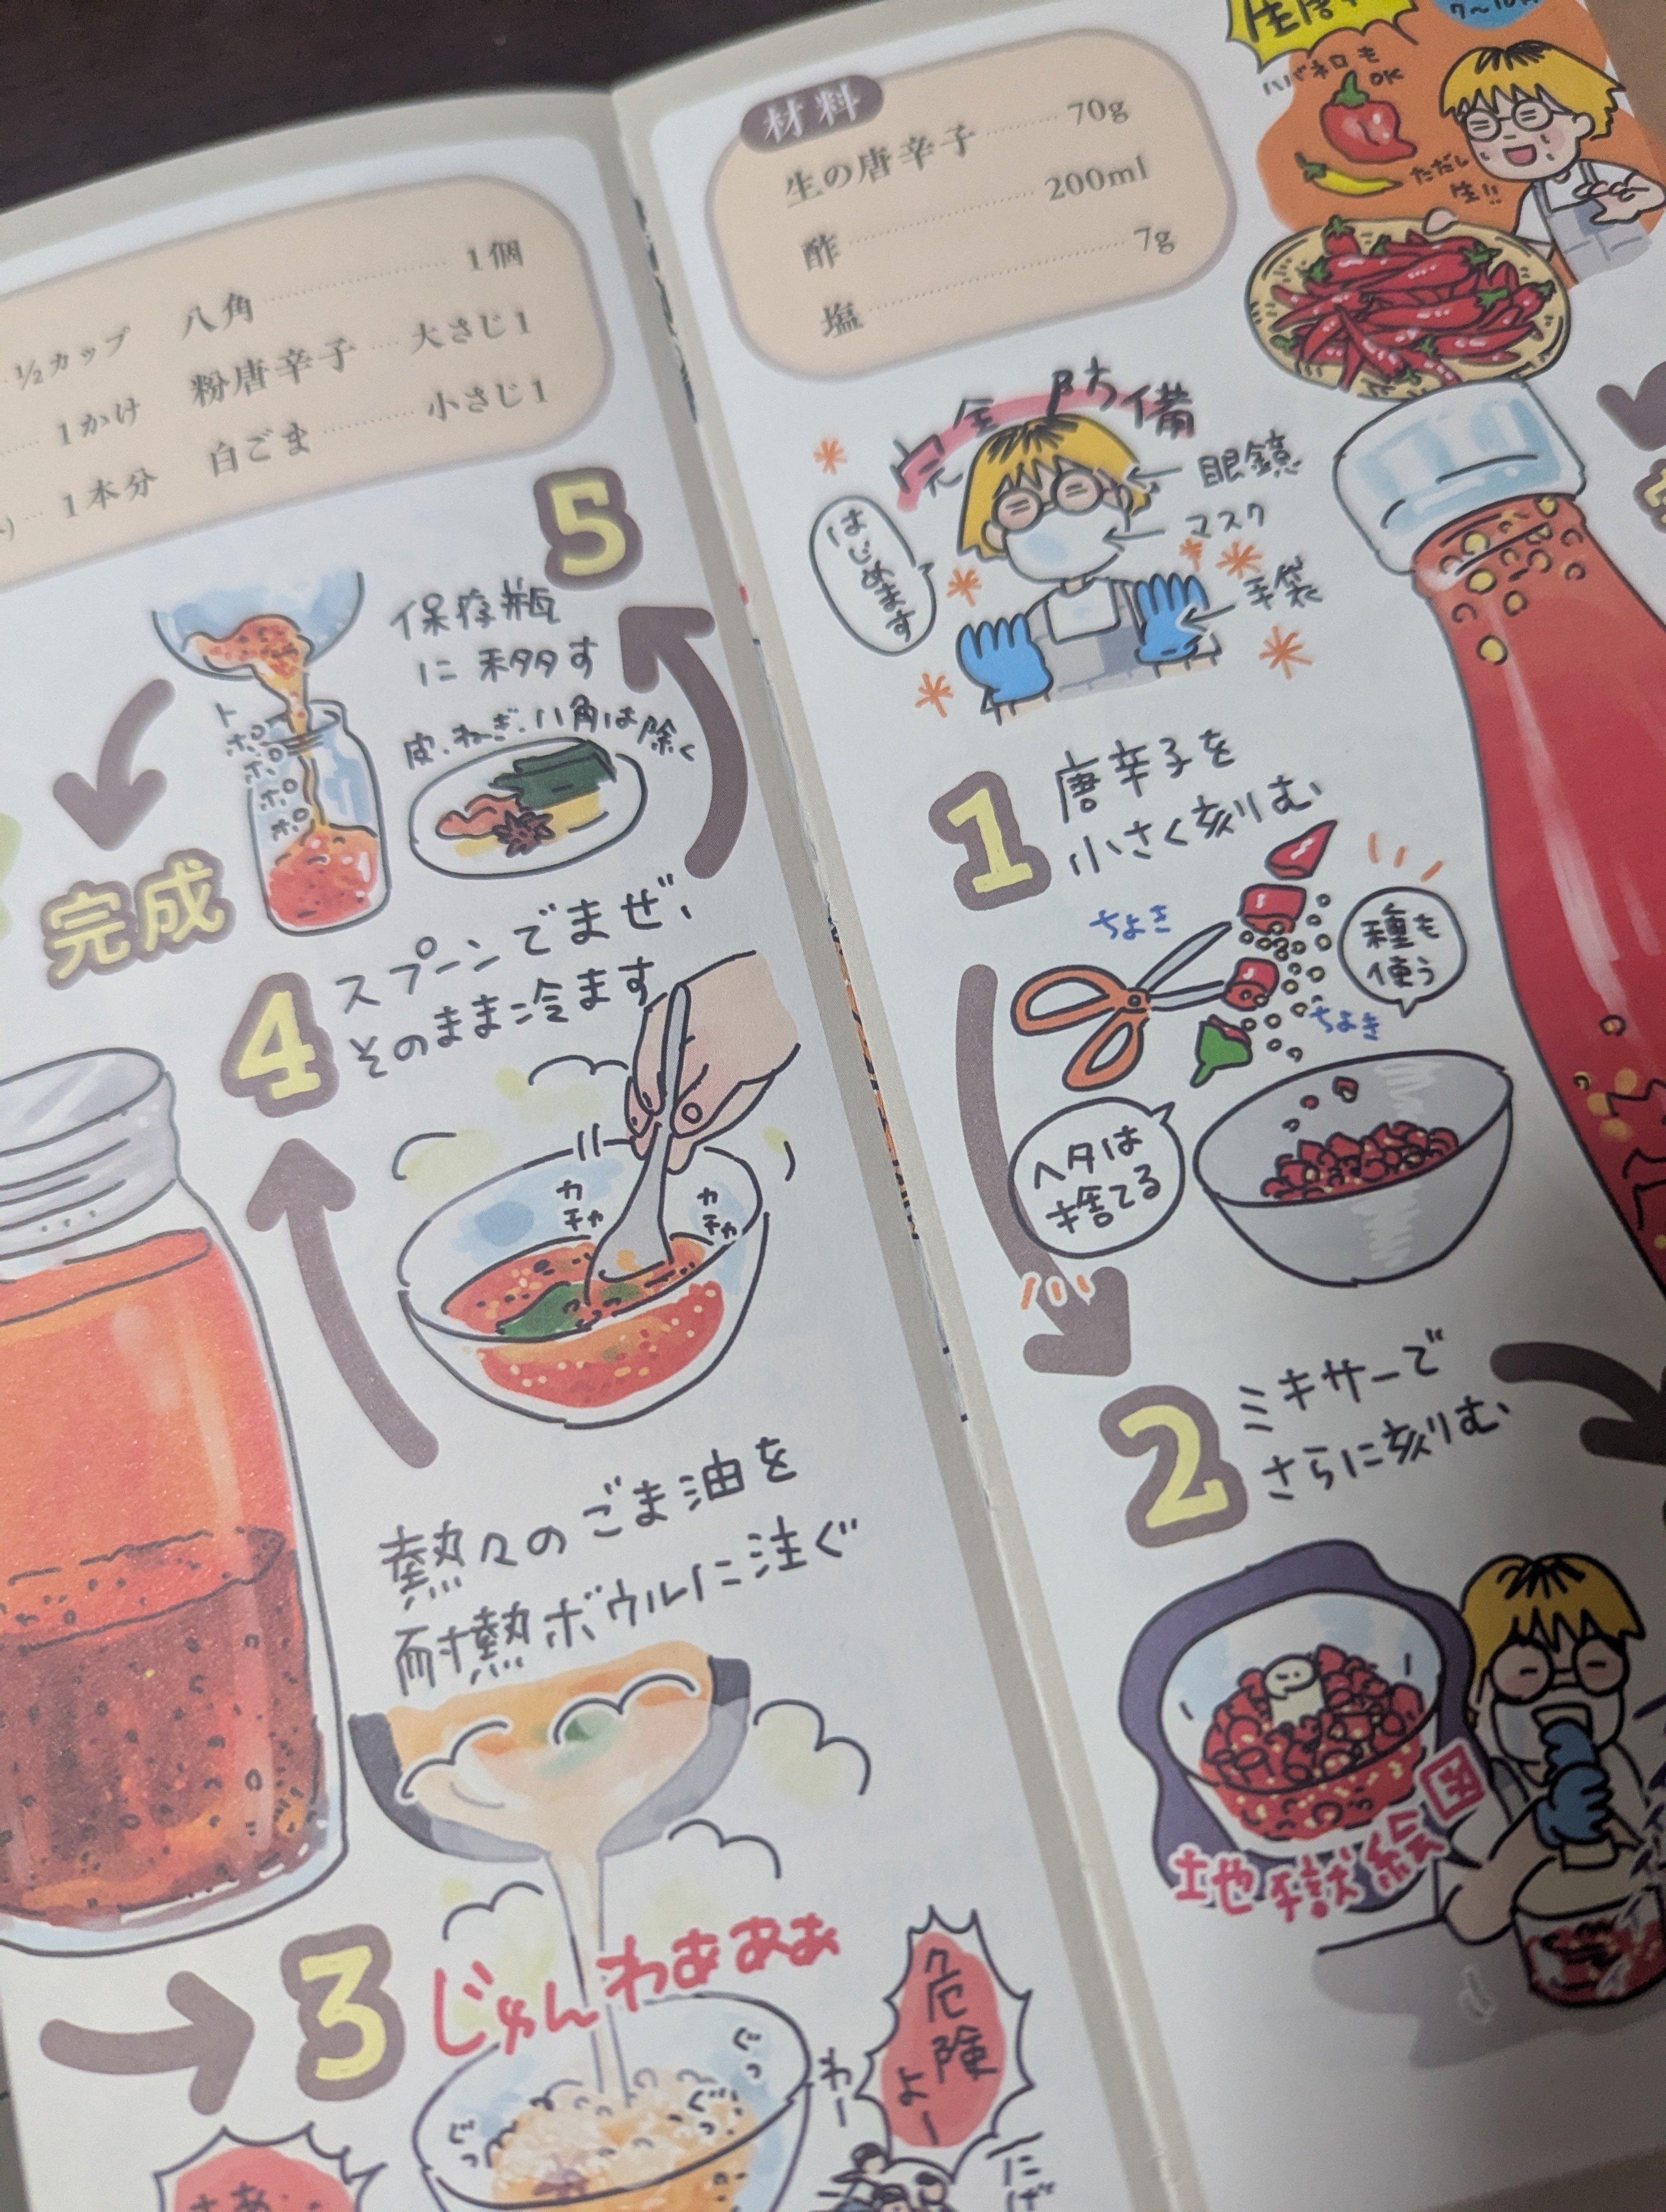 1/2カップ
1かけ
1本分
八角 1個
粉唐辛子 大さじ1
白ごま 小さじ1
5
保存瓶
に移す
皮、ねぎ、八角は除く
トポポポポ
完成
4
スプーンでまぜ、
そのまま冷ます
カチャ
カチャ
熱々のごま油を
耐熱ボウルに注ぐ
3
じゅんわあああ
ぐっ
ぐっ
ぐっ
危険よー
わー
材料
生の唐辛子 70g
酢 200ml
塩 7g
ハバネロも
OK
ただし
生!!
完全防備
はじめます
眼鏡
マスク
手袋
1
唐辛子を
小さく刻む
ちょき
種も
使う
ちょき
ヘタは
捨てる
2
ミキサーで
さらに刻む
地獄絵図